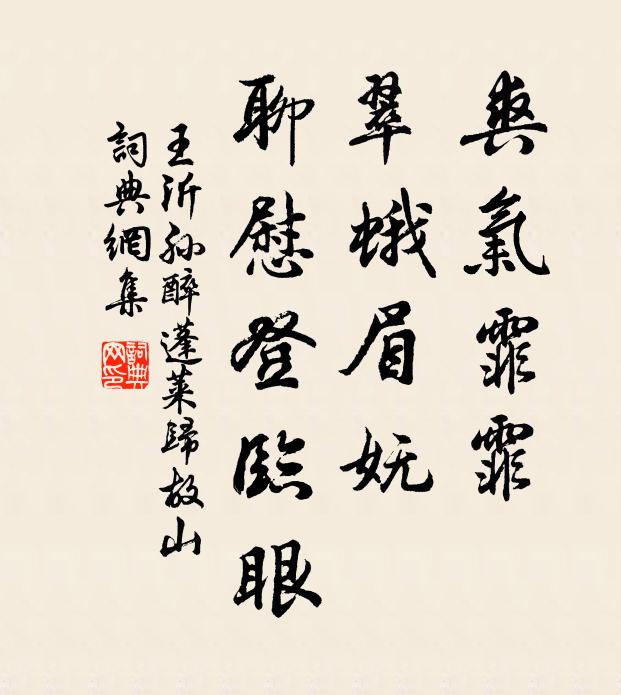 爽氣霏霏
翠蛾眉妩
聊慰登臨眼
王沂孫醉蓬萊歸故山
詞典網集
詞典網印